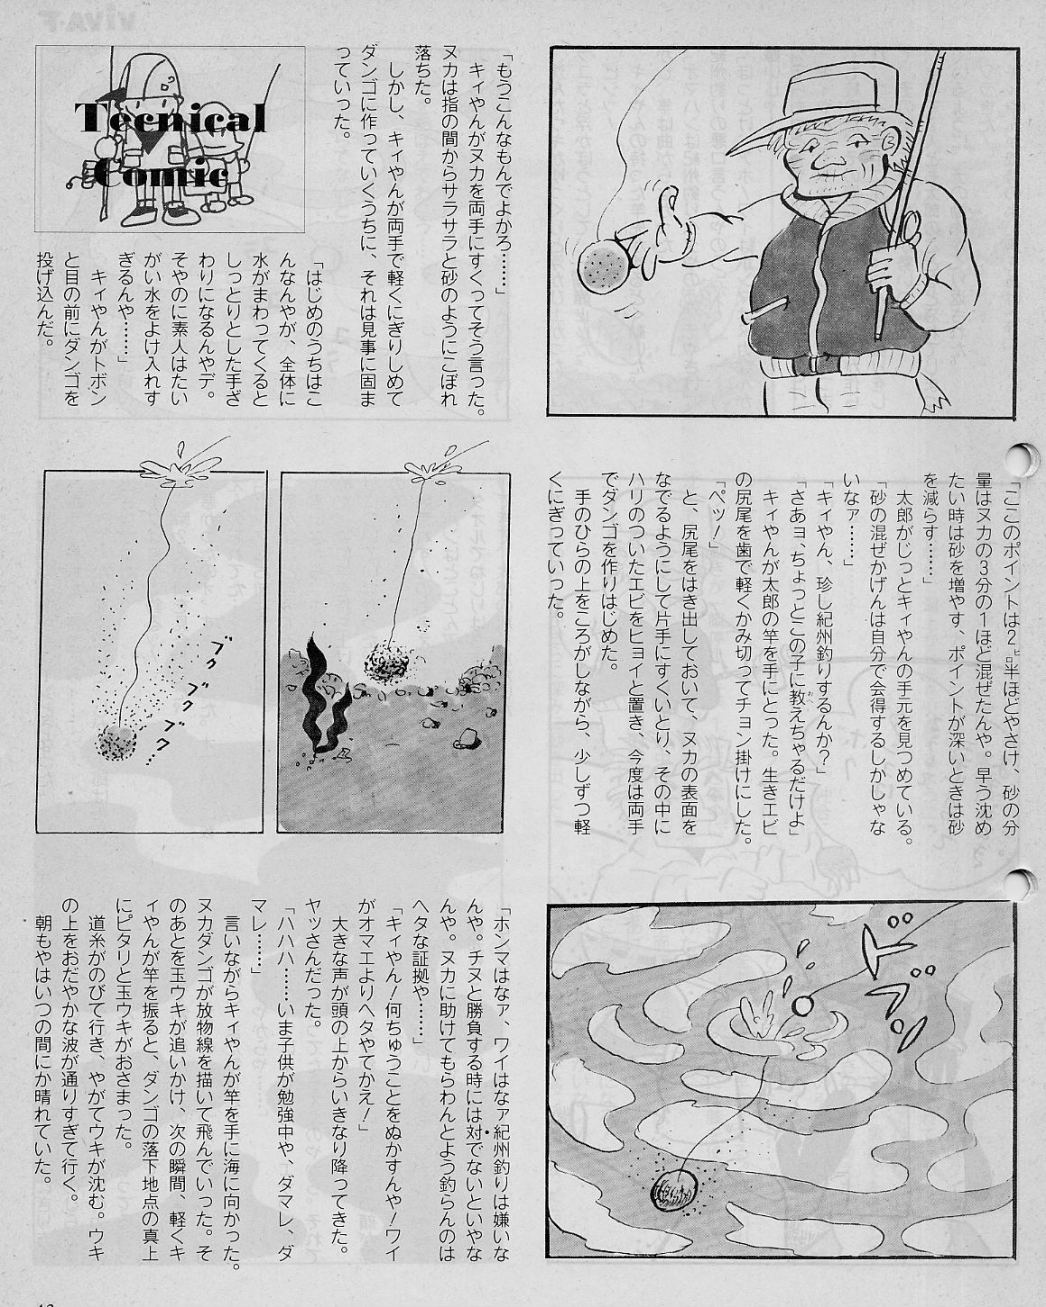 Tecnical
Comic
「もうこんなもんでよかろ……」
キィやんがヌカを両手にすくってそう言った。
ヌカは指の間からサラサラと砂のようにこぼれ
落ちた。
しかし、キィやんが両手で軽くにぎりしめて
ダンゴに作っていくうちに、それは見事に固ま
っていった。
「はじめのうちはこ
んなんやが、全体に
水がまわってくると
しっとりとした手ざ
わりになるんやデ。
そやのに素人はたい
がい水をよけ入れす
ぎるんや……」
キィやんがトボン
と目の前にダンゴを
投げ込んだ。
「ここのポイントは2㌳半ほどやさけ、砂の分
量はヌカの3分の1ほど混ぜたんや。早う沈め
たい時は砂を増やす、ポイントが深いときは砂
を減らす……」
太郎がじっとキィやんの手元を見つめている。
「砂の混ぜかげんは自分で会得するしかしゃな
いなァ……」
「キィやん、珍し紀州釣りするんか？」
「さあヨ、ちょっとこの子に教えちゃるだけよ」
キィやんが太郎の竿を手にとった。生きエビ
の尻尾を歯で軽くかみ切ってチョン掛けにした。
「ペッ！」
と、尻尾をはき出しておいて、ヌカの表面を
なでるようにして片手にすくいとり、その中に
ハリのついたエビをヒョイと置き、今度は両手
でダンゴを作りはじめた。
手のひらの上をころがしながら、少しずつ軽
くにぎっていった。
ブクブクブク……
ドブン
「ホンマはなァ、ワイはなァ紀州釣りは嫌いな
んや。チヌと勝負する時には対でないといやな
んや。ヌカに助けてもらわんとよう釣らんのは
ヘタな証拠や……」
「キィやん！何ちゅうことをぬかすんや！ワイ
がオマエよりヘタやてかえ！」
大きな声が頭の上からいきなり降ってきた。
ヤッさんだった。
「ハハハ……いま子供が勉強中や、ダマレ、ダ
マレ……」
言いながらキィやんが竿を手に海に向かった。
ヌカダンゴが放物線を描いて飛んでいった。そ
のあとを玉ウキが追いかけ、次の瞬間、軽くキ
ィやんが竿を振ると、ダンゴの落下地点の真上
にピタリと玉ウキがおさまった。
道糸がのびて行き、やがてウキが沈む。ウキ
の上をおだやかな波が通りすぎて行く。
朝もやはいつの間にか晴れていた。